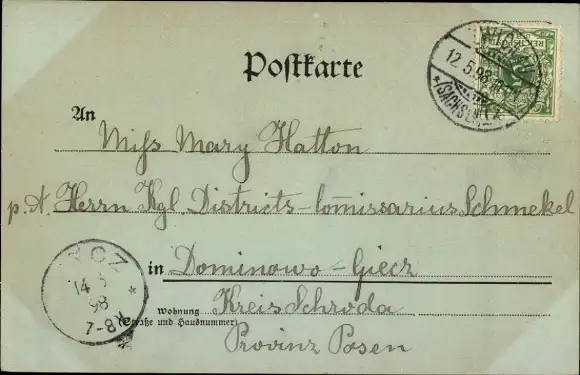 Postkarte
12.5.98
(SACHSEN)
REICHSPOST
An
Miss Mary Hatton
p. A. Herrn Kgl. Districts-Com̅issarius Schmekel
in Dominowo-Giecz
Kreis Schroda
Wohnung
(Straße und Hausnummer)
Provinz Posen
14
98
7-8